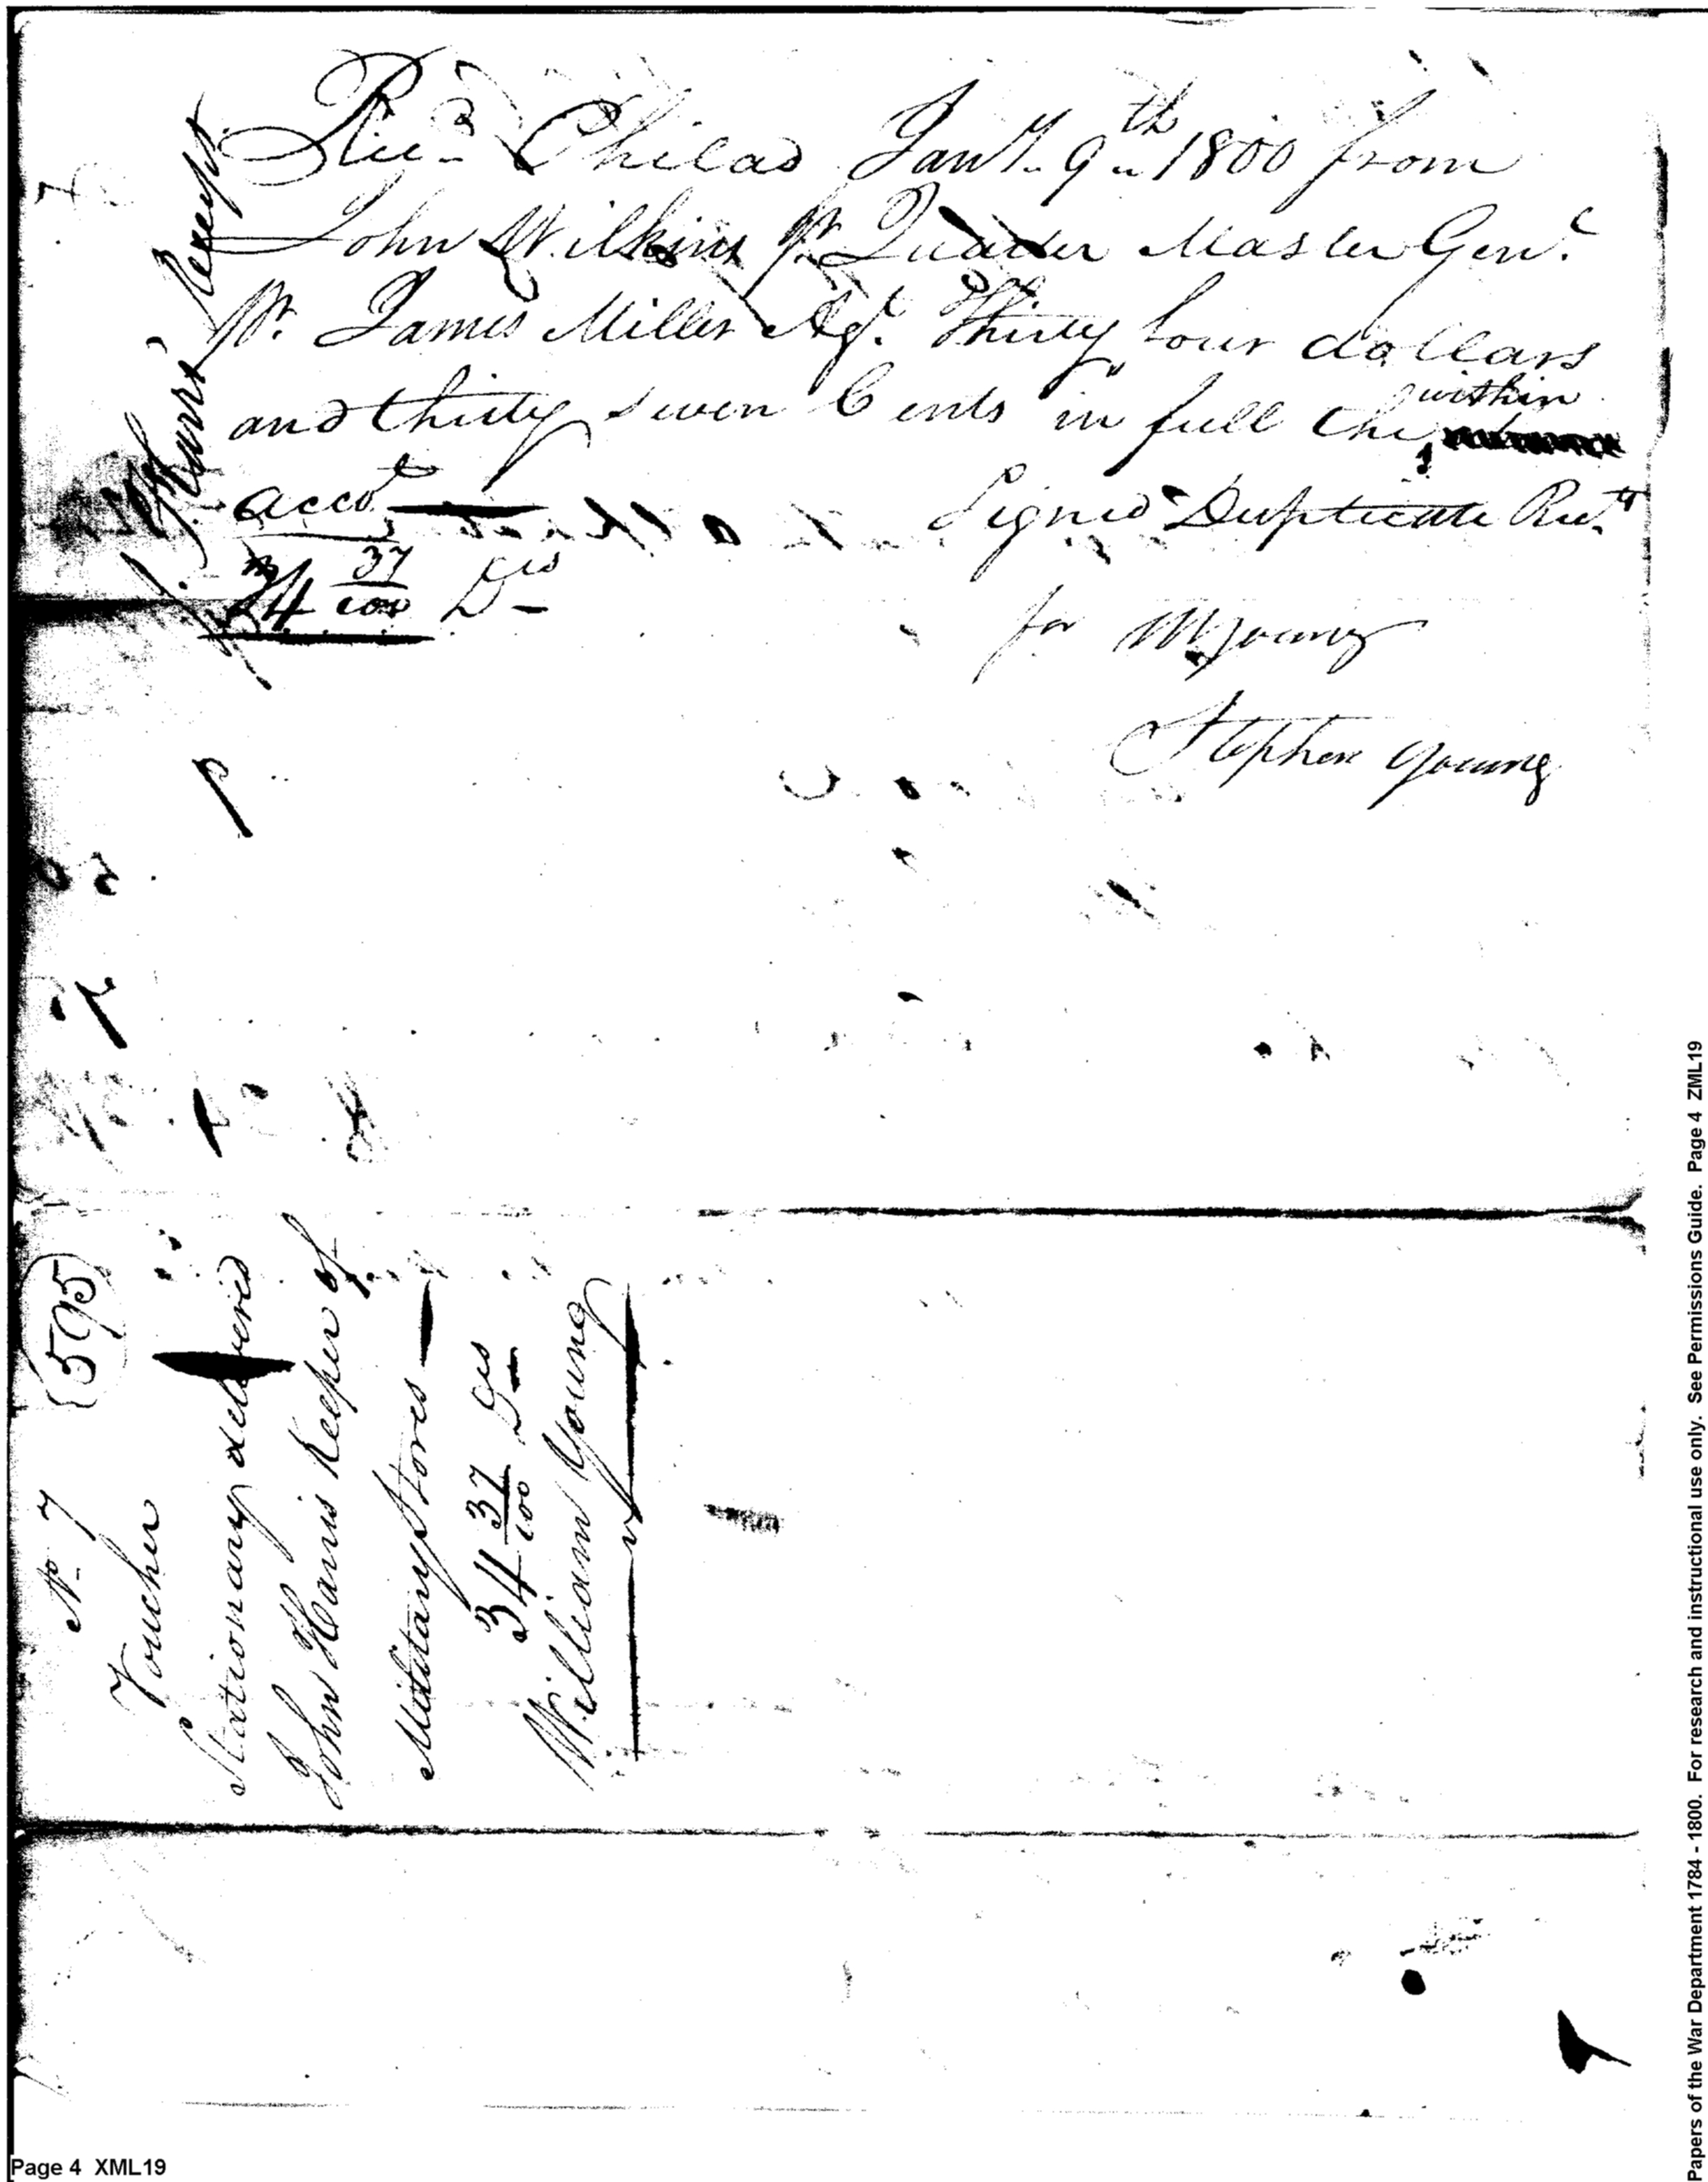 Rec'd Philad Jany. 9th 1800 from
John Wilkins Jr. Quarter Master Genl.
Pr. James Miller Agt. Thirty four dollars
and thirty seven Cents in full the within
acct
34 37/100 Dls
Signed Duplicate Rects
for Wm Young
Stephen Young
J. Harris' Receipt
No. 7
595
Voucher
Stationary delivered
John Harris Keeper of
Military Stores
34 37/100 Dls
William Young
Page 4 XML19
Papers of the War Department 1784 - 1800. For research and instructional use only. See Permissions Guide. Page 4 ZML19